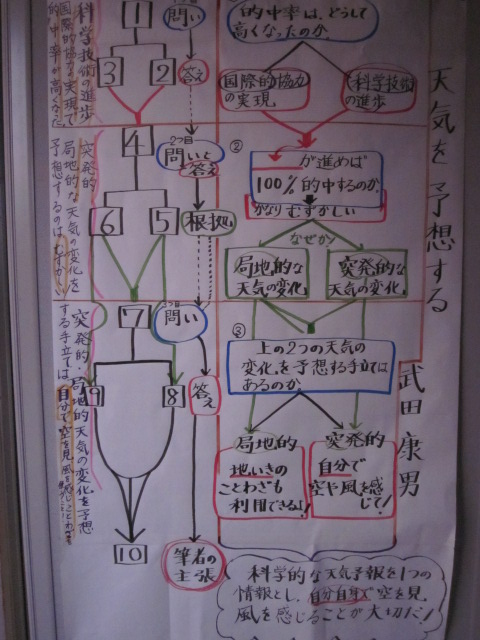 天気を予想する
武田康男
的中率は、どうして
高くなったのか。
国際的協力
の実現
科学技術
の進歩
②
が進めば
100%的中するのか。
かなりむずかしい
なぜか?
局地的な
天気の変化。
突発的な
天気の変化。
③
上の2つの天気の
変化を予想する手立ては
あるのか。
局地的
地いきの
ことわざも
利用できるよ!
突発的
自分で
空や風を感
じて!
科学的な天気予報を1つの
情報とし、自分自身で空を見、
風を感じることが大切だ!
1
問い
3
2
答え
4
2つ目
問いと
答え
6
5
根拠
7
問い
9
8
答え
10
筆者の
主張
科学技術の進歩
国際的協力の実現で
的中率が高くなった
突発的
局地的な天気の変化を
予想するのはむずかしい
突発的・局地的天気の変化を予想
する手立ては、自分で空を見、風を感じ